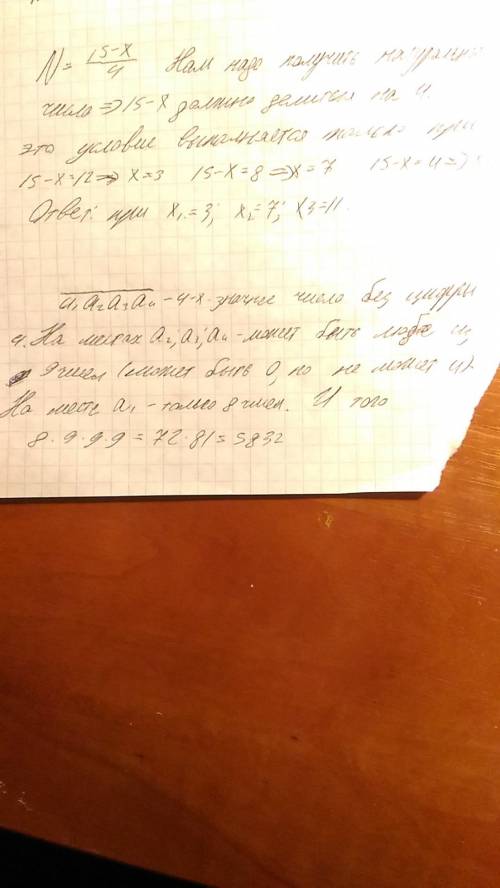 N = (15-x)/4 Нам надо получить натуральн
число => 15-x должно делиться на 4.
это условие выполняется только при
15-x=12 => x=3 15-x=8 => x=7 15-x=4 =>
Ответ: при x₁=3; x₂=7; x₃=11.
a₁a₂a₃a₄ - 4-х значное число без цифры
4. На местах a₂; a₃; a₄ - может быть любое из
9 чисел (может быть 0, но не может 4).
На месте a₁ - только 8 чисел. И того
8·9·9·9=72·81=5832